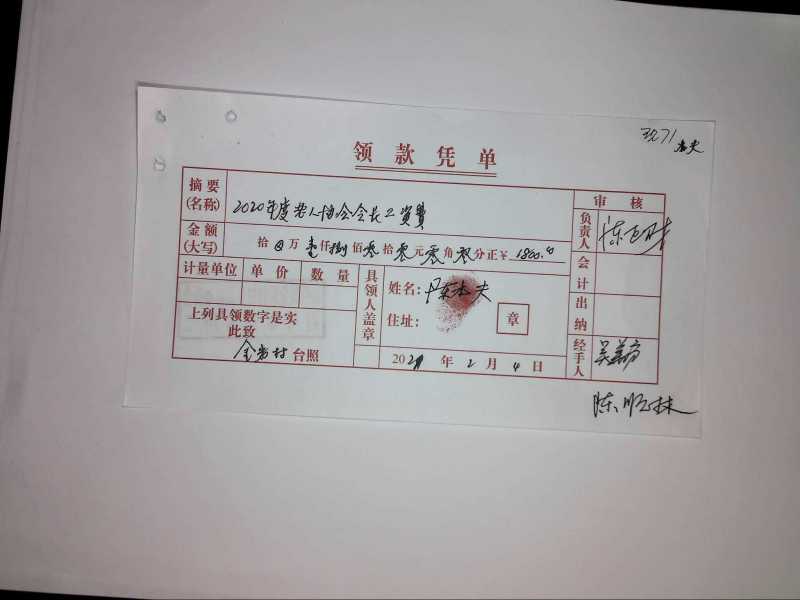 领款凭单
摘要(名称) 2020年度老人协会会长工资费
金额(大写) 拾 万壹仟捌佰零拾零元零角零分正￥1800.00
计量单位 单价 数量
上列具领数字是实
此致
台照
具领人盖章
姓名:
住址:
章
2021年2月4日
审核
负责人
会计
出纳
经手人
陈顺林